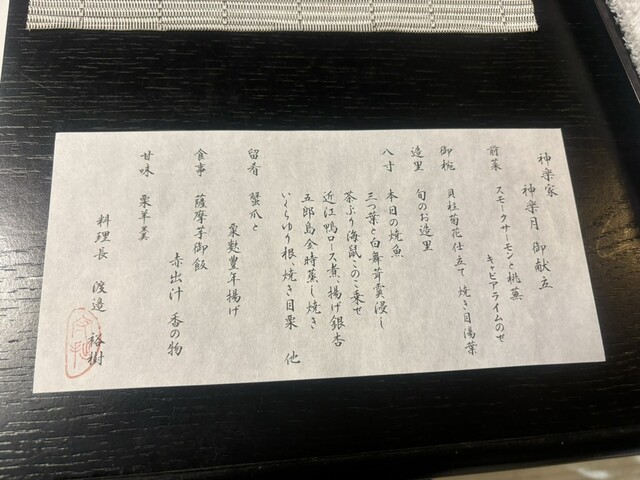 神楽家
神楽月 御献立
前菜 スモークサーモンと桃蕪
キャビアライムのせ
御椀 貝柱菊花仕立て 焼き目湯葉
造里 旬のお造里
八寸 本日の焼魚
三つ葉と白舞茸霙浸し
茶ぶり海鼠このこ乗せ
近江鴨ロース煮、揚げ銀杏
五郎島金時蒸し焼き
いくらゆり根、焼き目栗 他
留肴 蟹爪と
粟麩豊年揚げ
食事 薩摩芋御飯
赤出汁 香の物
甘味 栗羊羹
料理長 渡邉 裕樹